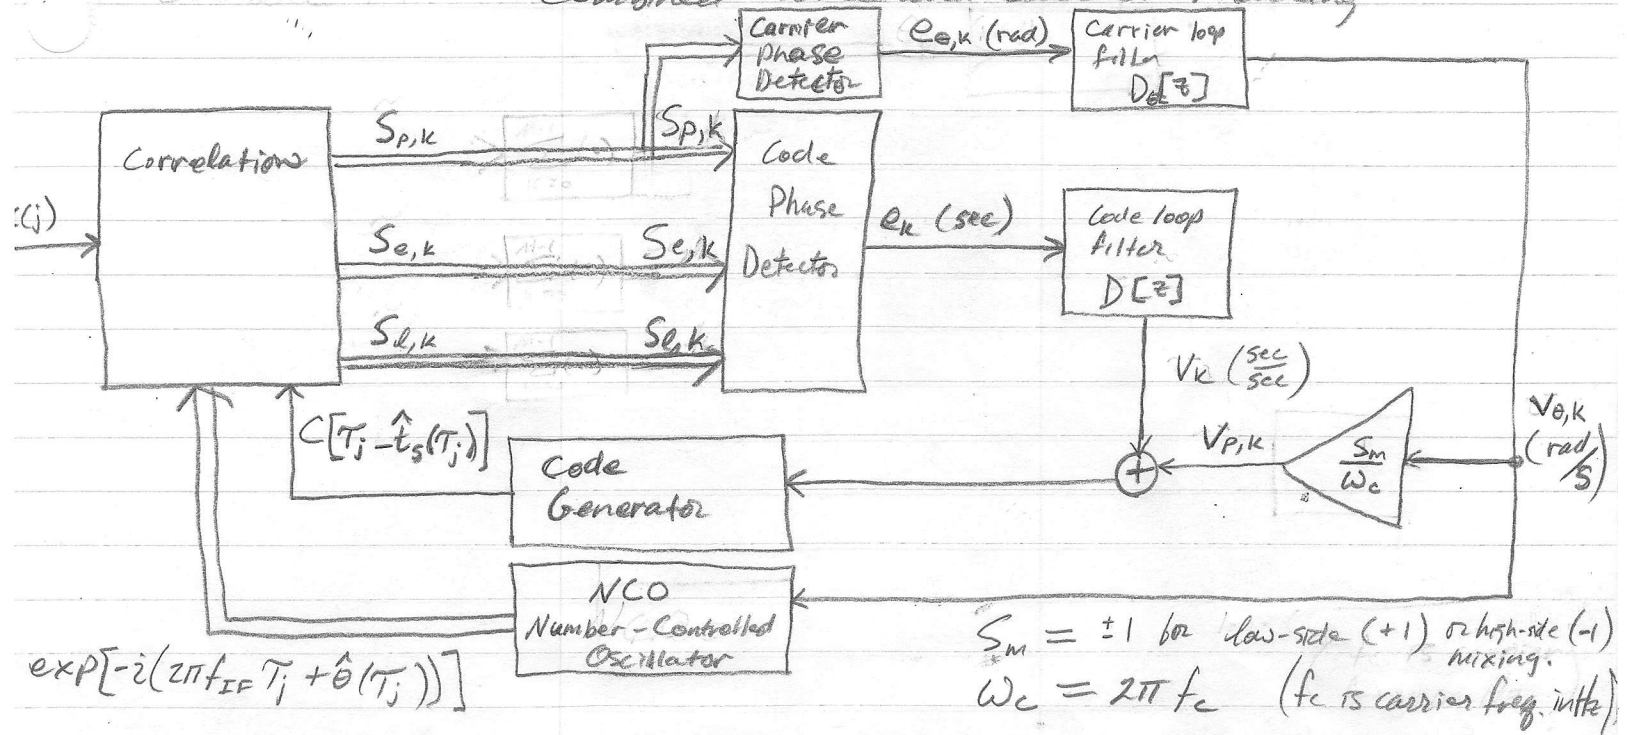 Combined
Tracking
Carrier
Phase
Detector
e_θ,k (rad)
Carrier loop
filter
D_θ[z]
Correlation
S_p,k
S_p,k
Code
Phase
Detector
(j)
S_e,k
S_e,k
e_k (sec)
Code loop
filter
D[z]
S_l,k
S_l,k
V_k (sec/sec)
C[τ_j - t̂_s(τ_j)]
Code
Generator
+
V_p,k
S_m/ω_c
V_θ,k
(rad/s)
NCO
Number-Controlled
Oscillator
exp[-i(2πf_IF τ_j + θ̂(τ_j))]
S_m = ±1 for low-side (+1) or high-side (-1)
mixing.
ω_c = 2π f_c (f_c is carrier freq. in Hz)